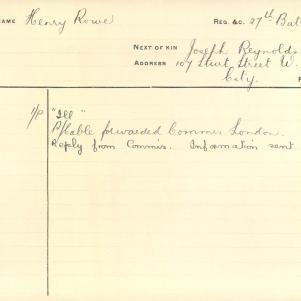 NAME Henry Rowe REG. &C. 27th Bat
NEXT OF KIN Joseph Reynolds
ADDRESS 107 Street W.
City.
1/P "Ill"
P/Cable forwarded Commis London.
Reply from Commis. Information sent